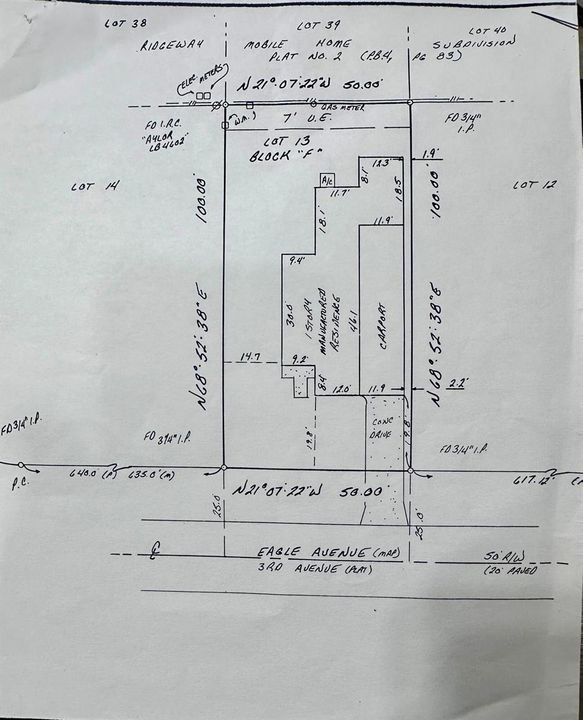 LOT 38
LOT 39
LOT 40
RIDGEWAY MOBILE HOME SUBDIVISION
PLAT NO. 2 (P.B.4, PG 83)
ELEC METERS
N 21°·07'·22"W 50.00'
GAS METER
W.M.
7' U.E.
FD I.R.C.
LB4602"
FD 3/4"
I.P.
LOT 13
BLOCK "F"
LOT 14
LOT 12
A/C
12.3'
8.1'
1.9'
11.7'
18.5'
18.1'
11.9'
100.00'
100.00'
9.4'
30.0'
1 STORY
MANUFACTURED
RESIDENCE
46.1
CARPORT
N 68°·52'·38"E
N 68°·52'·38"E
14.7
9.2'
8.4'
12.0'
11.9
2.2'
19.8'
19.8'
CONC
DRIVE
FD 3/4" I.P.
FD 3/4" I.P.
FD 3/4" I.P.
P.C.
640.0' (P) 635.0'(M)
617.12'
N 21°·07'·22"W 50.00
25.0'
25.0'
EAGLE AVENUE (MAP)
3RD AVENUE (PLAT)
50' R/W
(20' PAVED